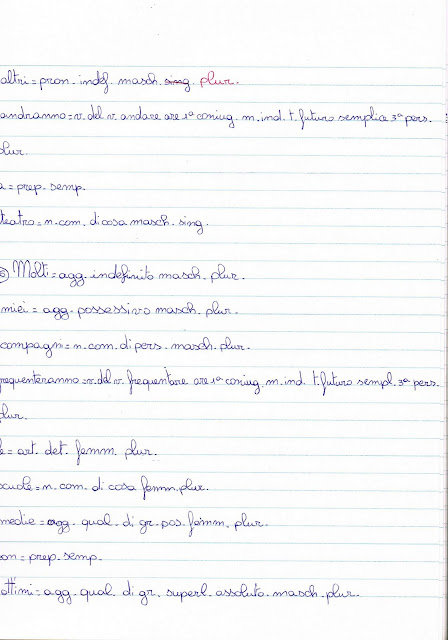 altri = pron. indef. masch. sing. plur.
andranno = v. del v. andare are 1ª coniug. m. ind. t. futuro semplice 3ª pers.
plur.
a = prep. semp.
teatro = n. com. di cosa masch. sing.
Molti = agg. indefinito masch. plur.
miei = agg. possessivo masch. plur.
compagni = n. com. di pers. masch. plur.
frequenteranno = v. del v. frequentare are 1ª coniug. m. ind. t. futuro sempl. 3ª pers.
plur.
le = art. det. femm. plur.
scuole = n. com. di cosa femm. plur.
medie = agg. qual. di gr. pos. femm. plur.
con = prep. semp.
ottimi = agg. qual. di gr. superl. assoluto masch. plur.